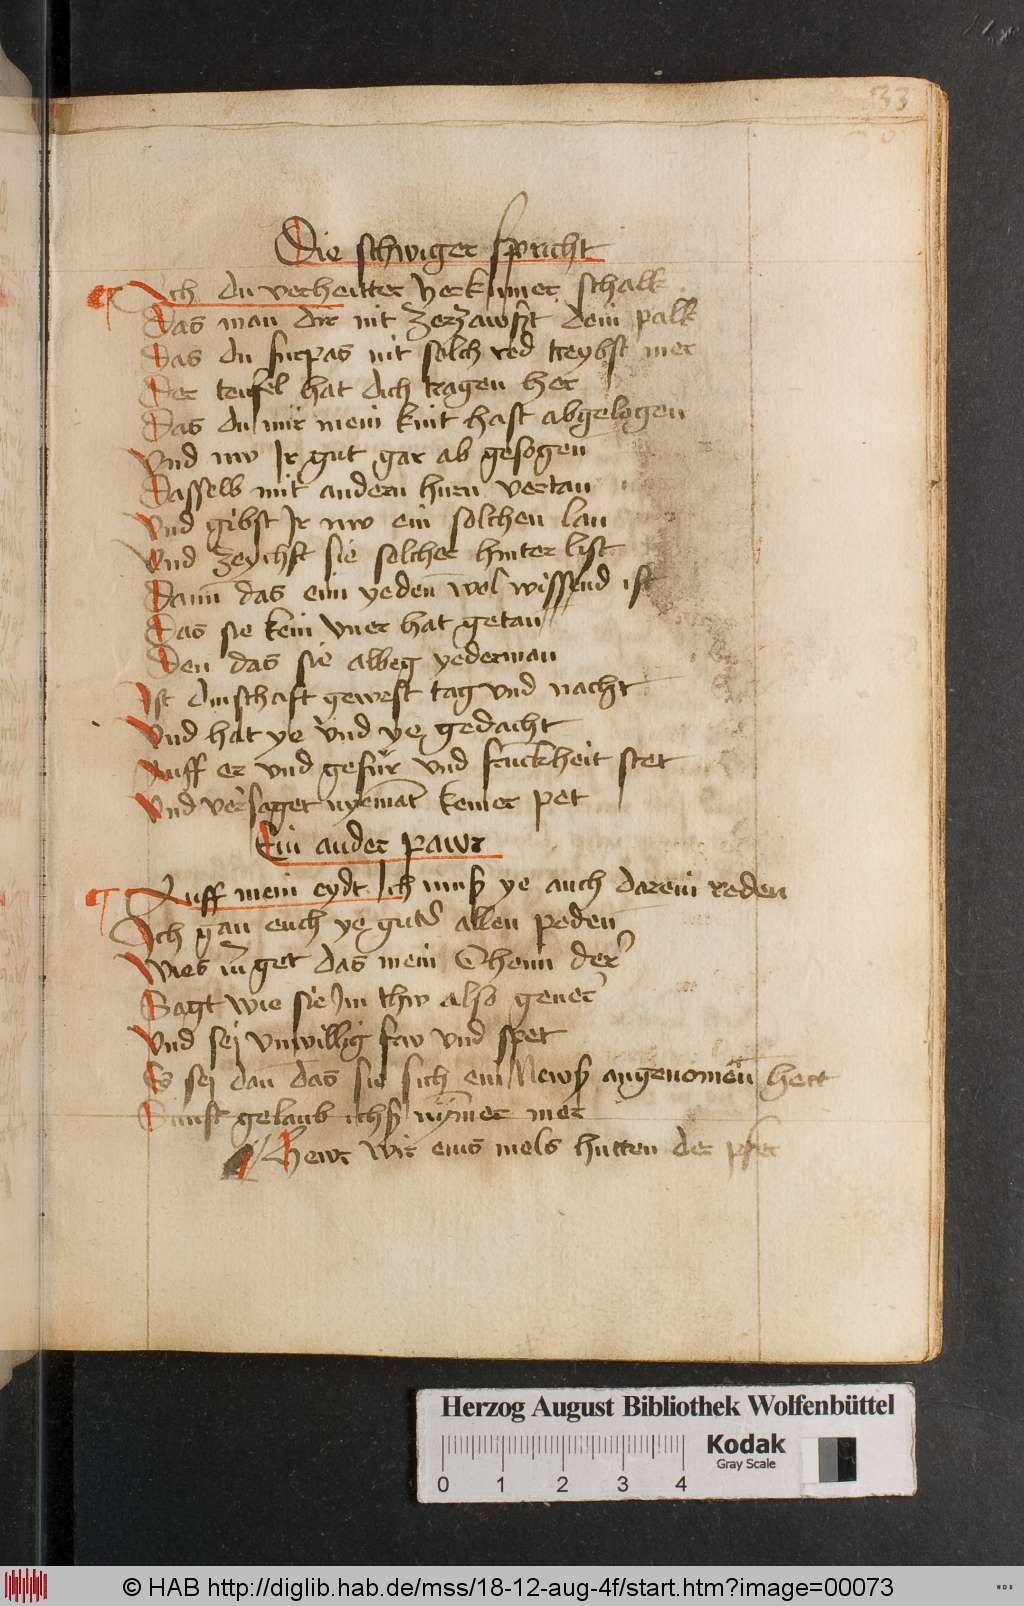 33
Die schwiger spricht
Ach du verheitter verkumer schalk
Das man dir nit zerzawst dein palk
Das du furpas nit solch red treybst mer
Der teufel hat dich tragen her
Das du mir mein kint hast abgelogen
Vnd nw Ir gut gar ab gesogen
Dasselb mit andern hurn vertan
Vnd gibst Ir nw ein solchen lan
Vnd zeyhst sie solcher hinter list
Dann das eim yeden wol wissend ist
Das sie kein vner hat getan
Den das sie albeg yederman
Ist dinsthaft gewest tag vnd nacht
Vnd hat ye vnd ye gedacht
Auff er vnd gefur vnd frumkheit stet
Vnd versaget nyemat keiner pet
Ein ander pawr
Auff mein eydt Ich muß ye auch darein reden
Ich gan euch ye guts allen peden
Wies get das mein Ohem der
Sagt wie sie Im thw also gever
Vnd sej vnwillig faw vnd spet
Es sej dan das sie sich ein News angenomen hett
Sunst gelaub ichs nymer mer
Hewt wir eins mels hutten der pfer
Herzog August Bibliothek Wolfenbüttel
Kodak
Gray Scale
0 1 2 3 4
© HAB http://diglib.hab.de/mss/18-12-aug-4f/start.htm?image=00073